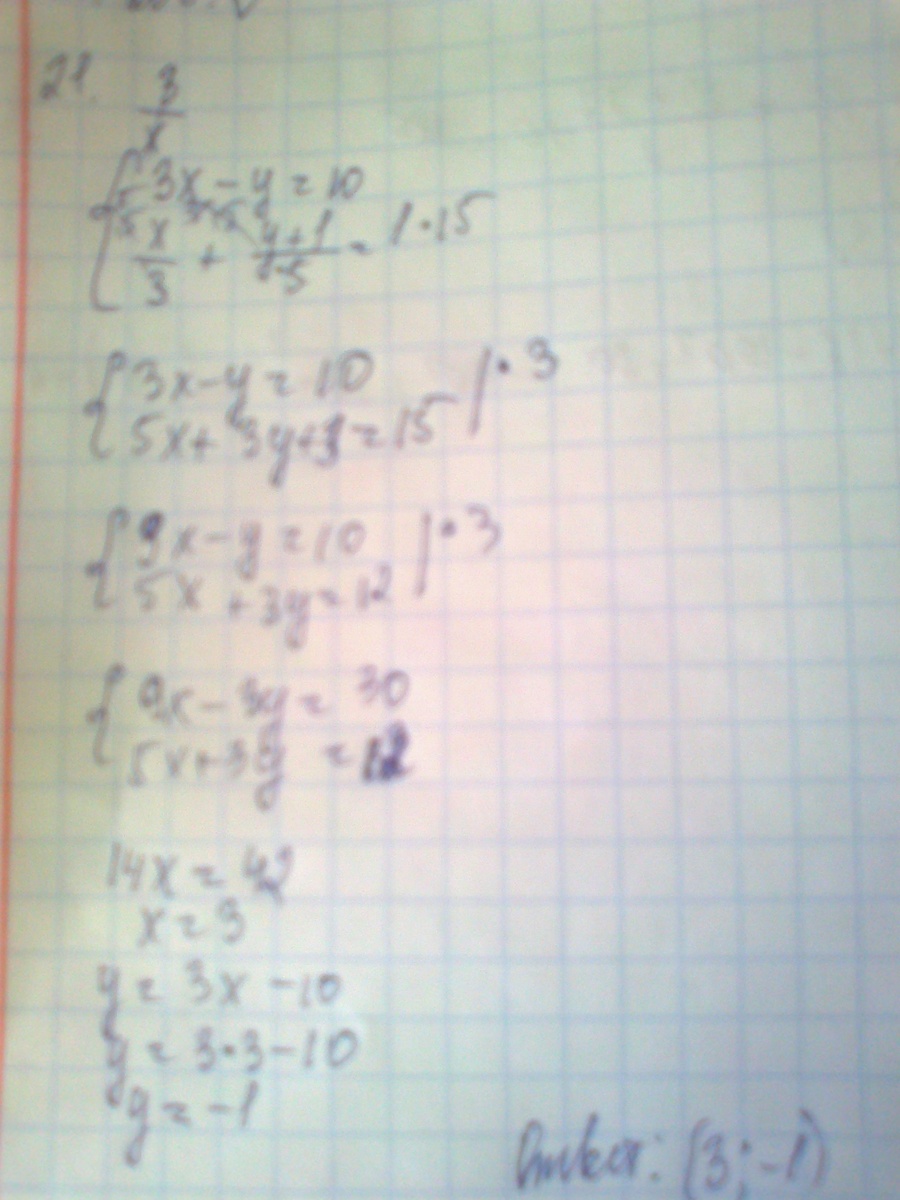 21. 3
x
{ 3x - y = 10
x/3 + y+1/5 = 1·15
{ 3x - y = 10 |·3
5x + 3y + 3 = 15
{ 9x - y = 10 |·3
5x + 3y = 12
{ 9x - 3y = 30
5x + 3y = 12
14x = 42
x = 3
y = 3x - 10
y = 3·3 - 10
y = -1
Ответ: (3; -1)